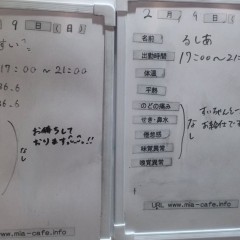 9 日 (日)
17:00〜21:00
36.6
6.6
お待ちして
おります!!
なし
www.mia-cafe.info
2 月 9 日
名前 るしあ
出勤時間 17:00〜21
体温
平熱
のどの痛み
せき・鼻水
倦怠感 なし
味覚異常
嗅覚異常
お給仕です
URL www.mia-cafe.info